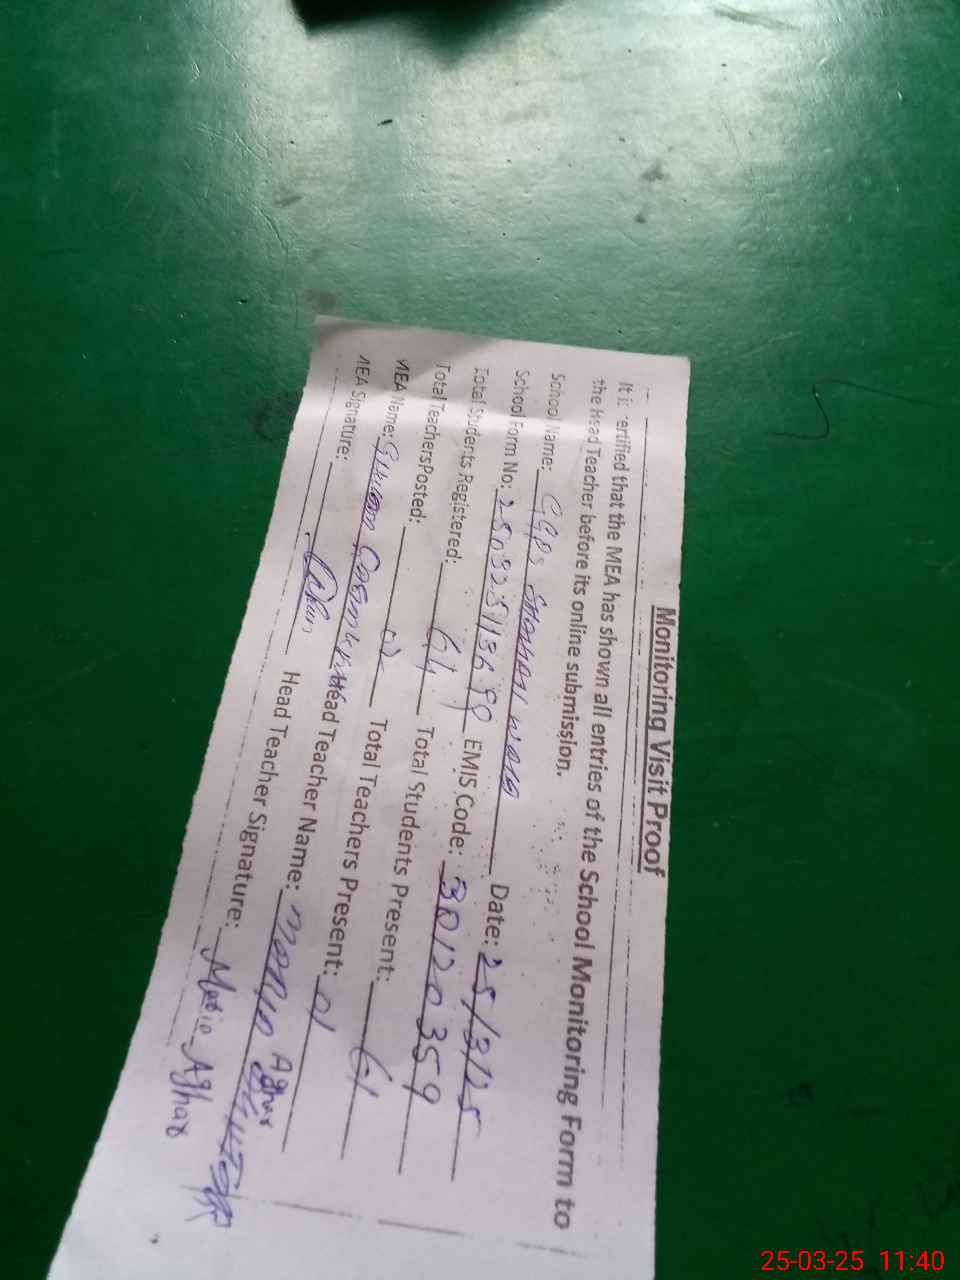 Monitoring Visit Proof
It is certified that the MEA has shown all entries of the School Monitoring Form to
the Head Teacher before its online submission.
School Name: GGPS Date: 25/3/25
School Form No: EMIS Code: 30120359
Total Students Registered: 64 Total Students Present: 61
Total Teachers Posted: Total Teachers Present: 01
MEA Name: Head Teacher Name: Aghar
MEA Signature: Head Teacher Signature: Aghar
25-03-25 11:40